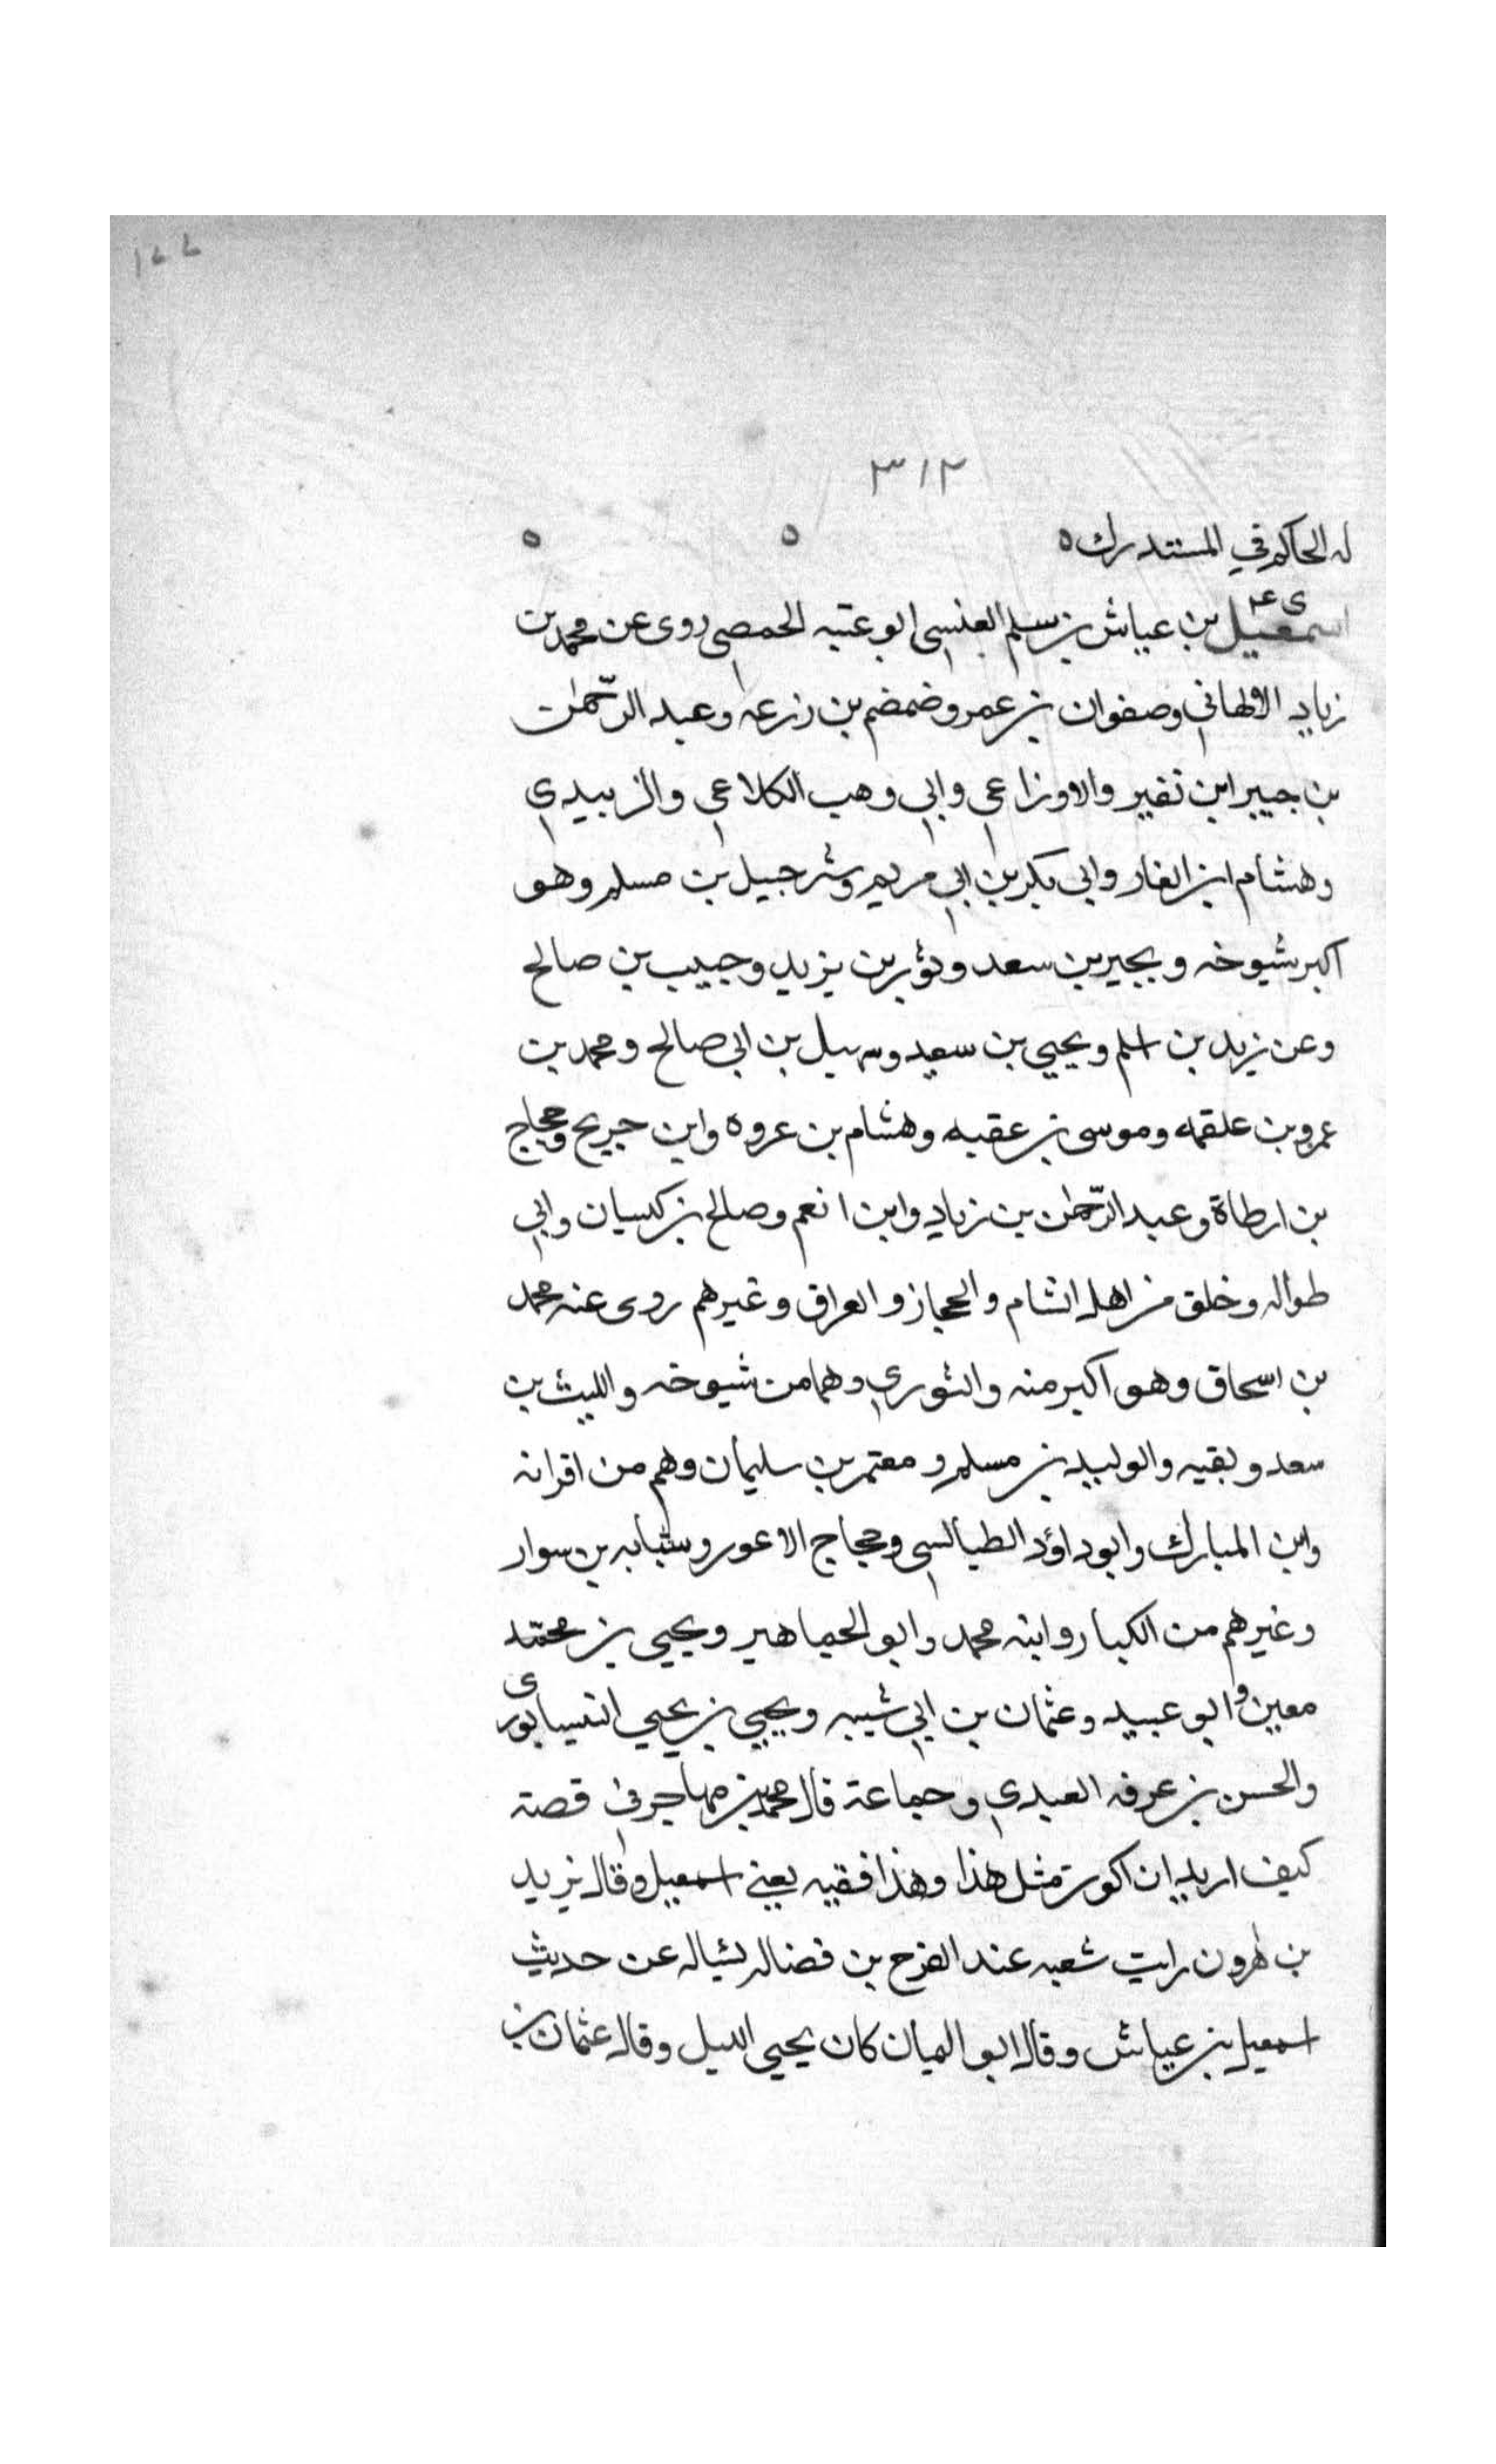 ١٤٤
٣١٢
له الحاكم في المستدرك ٥ ٥ ٥
ى عه
اسمعيل بن عياش بن سلم العنسي ابو عتبه الحمصي روى عن محمد بن
زياد الالهاني وصفوان بن عمرو وضمضم بن زرعه وعبد الرّحمٰن
بن جبير ابن نفير والاوزاعي وابي وهب الكلاعي والزبيدي
وهشام ابن الغار وابي بكر بن ابي مريم وشرحبيل بن مسلم وهو
اكبر شيوخه وبحير بن سعد وثور بن يزيد وحبيب بن صالح
وعن زيد بن اسلم ويحيي بن سعيد وسهيل بن ابي صالح ومحمد بن
عمرو بن علقمه وموسى بن عقبه وهشام بن عروه وابن جريج وحجاج
بن ارطاة وعبد الرّحمٰن بن زياد وابن انعم وصالح بن كيسان وابي
طواله وخلق من اهل الشام والحجاز والعراق وغيرهم روى عنه محمد
بن اسحاق وهو اكبر منه والثوري وهما من شيوخه والليث بن
سعد وبقيه والوليد بن مسلم ومعتمر بن سليمان وهم من اقرانه
وابن المبارك وابو داؤد الطيالسي وحجاج الاعور وشبابه بن سوار
وغيرهم من الكبار وابنه محمد وابو الجماهير ويحيى بن محمّد
معين وابو عبيد وعثمان بن ابي شيبه ويحيي بن يحيي النيسابورى
والحسن بن عرفه العبدي وجماعة قال محمد بن مهاجر في قصة
كيف اريد ان اكون مثل هذا وهذا فقيه يعني اسمعيل وقال يزيد
بن هٰرون رايت شعبه عند الفرج بن فضاله يسئاله عن حديث
اسمعيل بن عياش وقال ابو اليمان كان يحيى الليل وقال عثمان بن